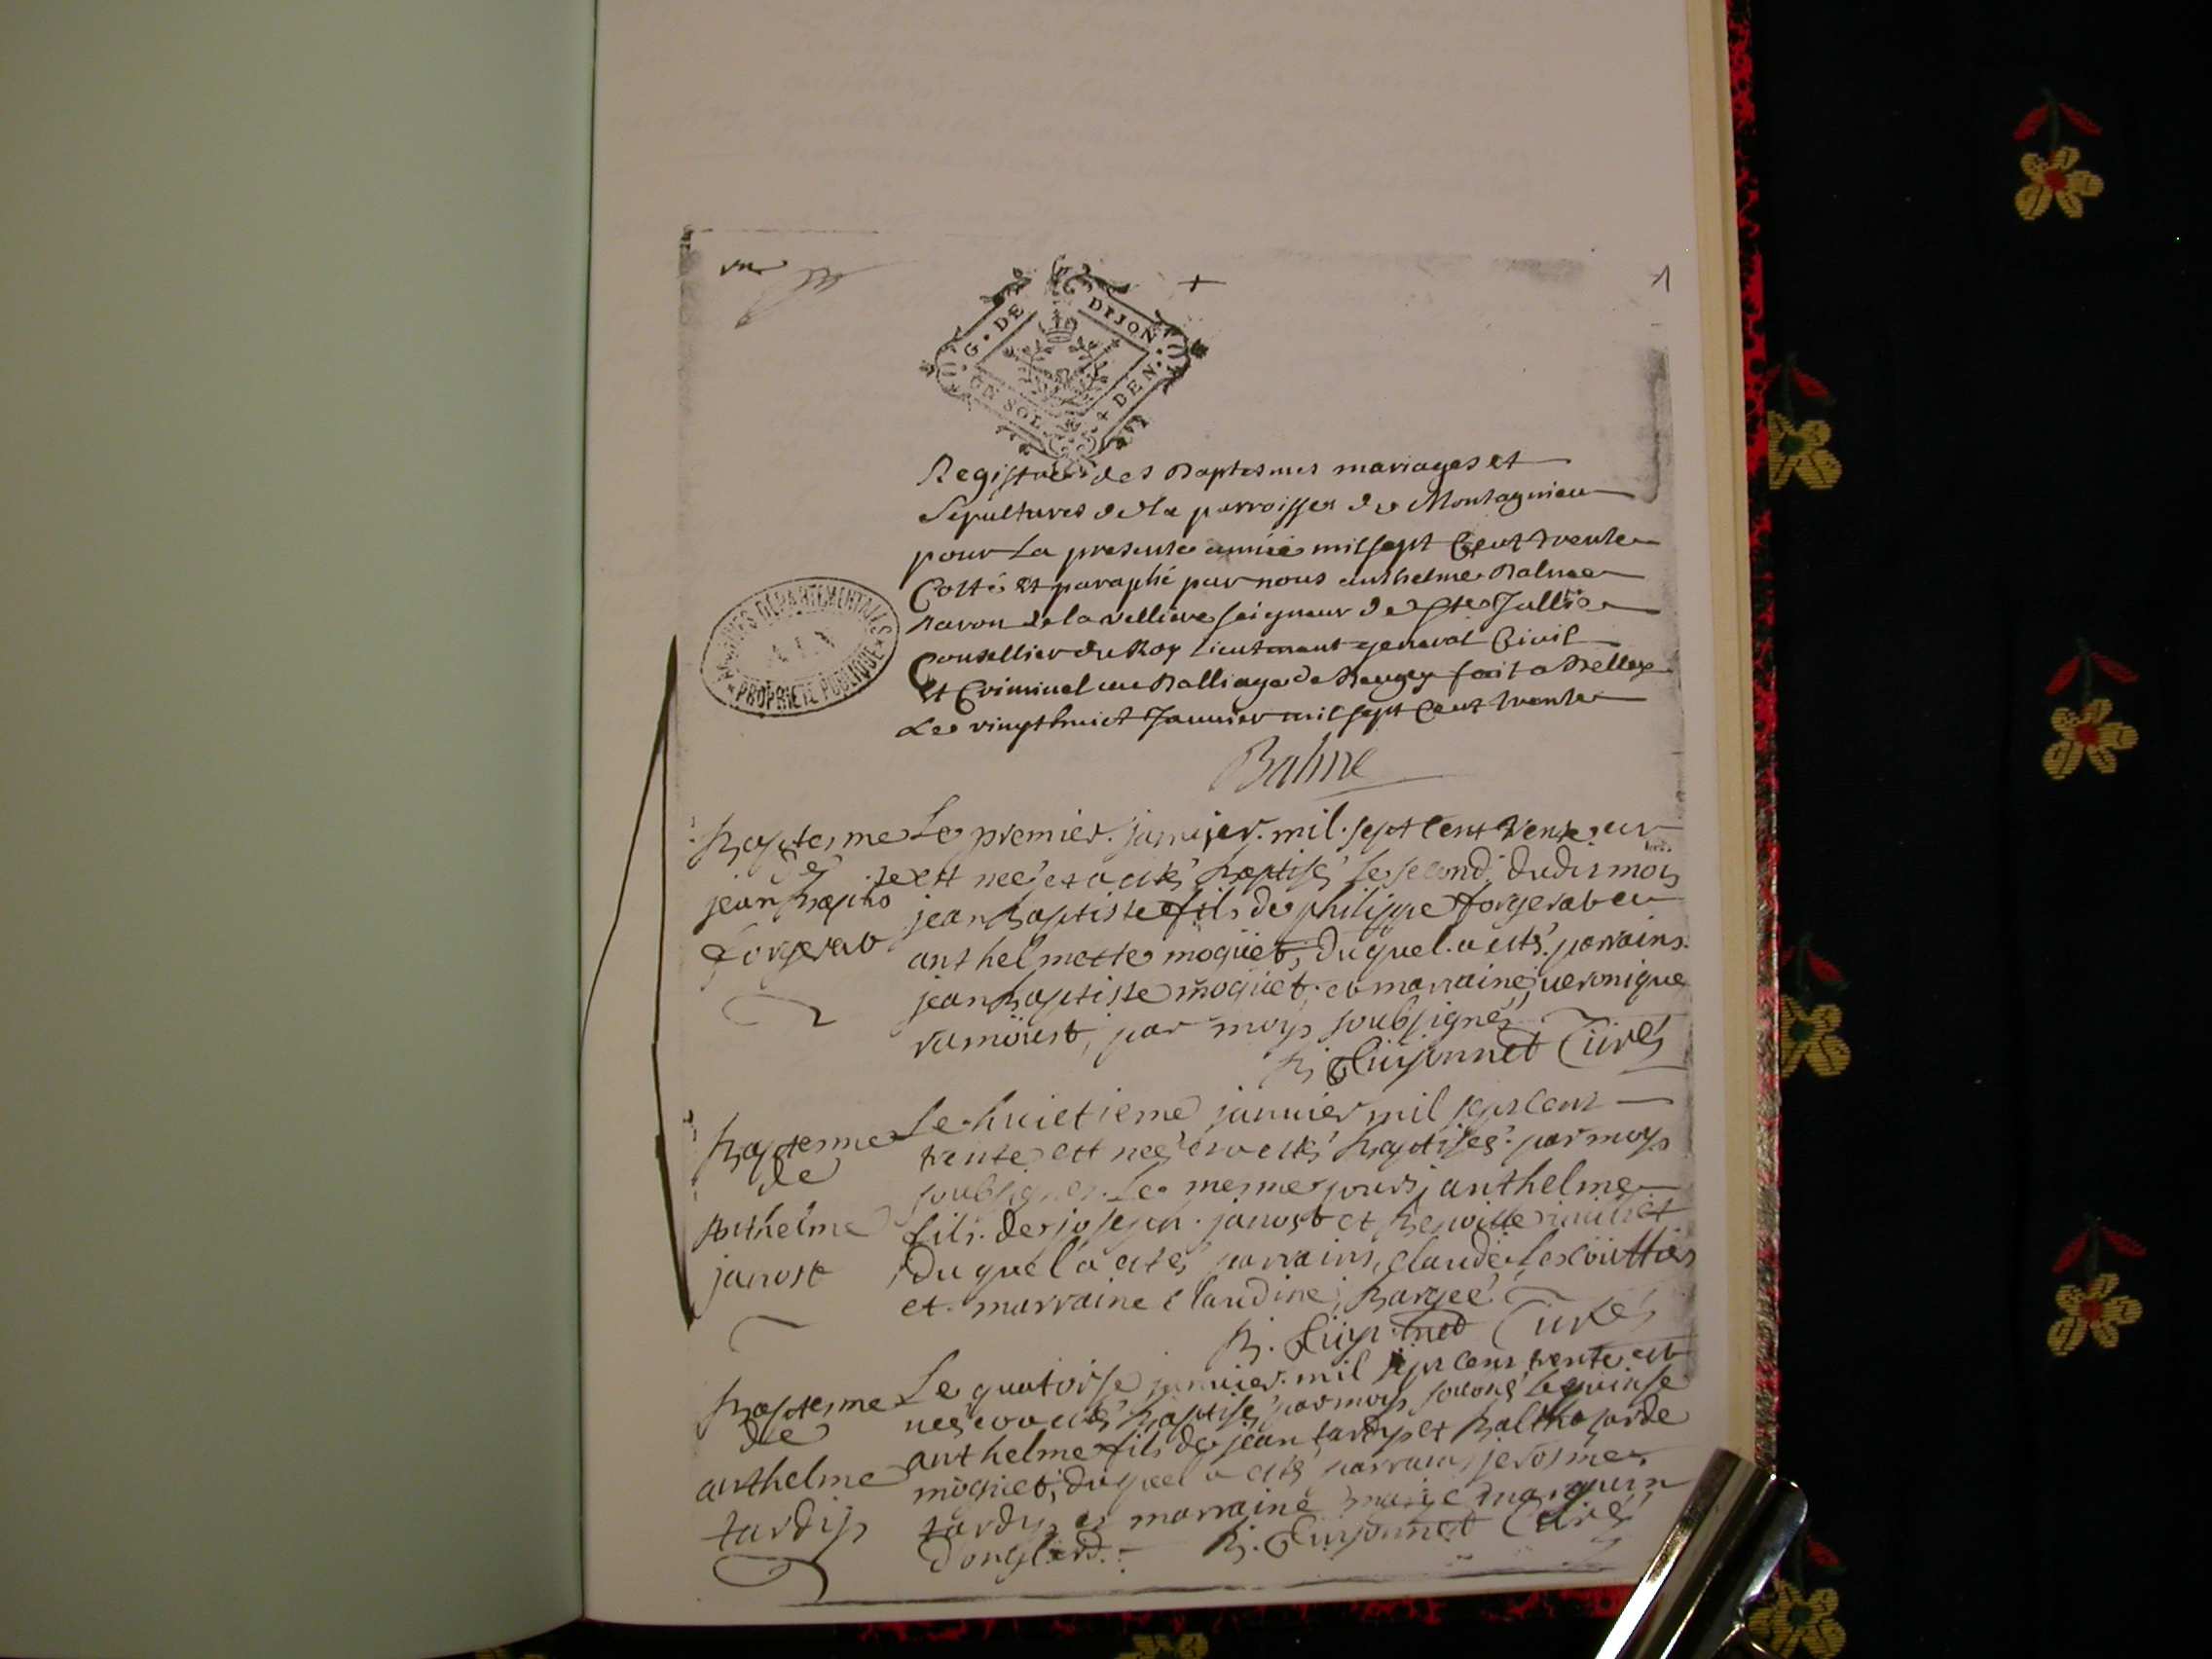 1
G. DE DIJON
UN SOL 4 DEN.
Registre des Baptesmes mariages et
Sepultures de la parroisse de Montagnieu
pour La presente année mil sept Cent trente
Cotté et paraphé par nous anthelme Balme
baron de la velliere seigneur de Ste Jullie
Consellier du Roy lieutenant general Civil
et Criminel au Balliage de Beugey fait a Belley
Le vingt huict Janvier mil sept Cent trente
Balme
ARCHIVES DÉPARTEMENTALES
AIN
PROPRIÉTÉ PUBLIQUE
Baptesme
de
jean bapte
forgerat
Le premier janvier mil sept cent trente
est neé et a esté baptisé le second dudit mois
jean baptiste fils de philippe forgerat et
anthelmette moquet, duquel a esté parrains
jean baptiste moquet et marraine veronique
ramoüst, par moy soubsigné
B Guyonnet Curé
Baptesme
de
Anthelme
janost
Le huictieme janvier mil sept cent
trente est neé et a esté baptiseé par moy
soubsigné le mesme jour anthelme
fils de joseph janost et
duquel a esté parrains claude
et marraine claudine
B. Guyonnet Curé
Baptesme
de
anthelme
tardy
Le quatorse janvier mil sept cent trente est
neé et a esté baptisé par moy soubsé le quinse
anthelme fils de jean tardy et Balthasarde
moquiet, duquel a esté parrain jerosme
tardy et marraine marie
B. Guyonnet Curé